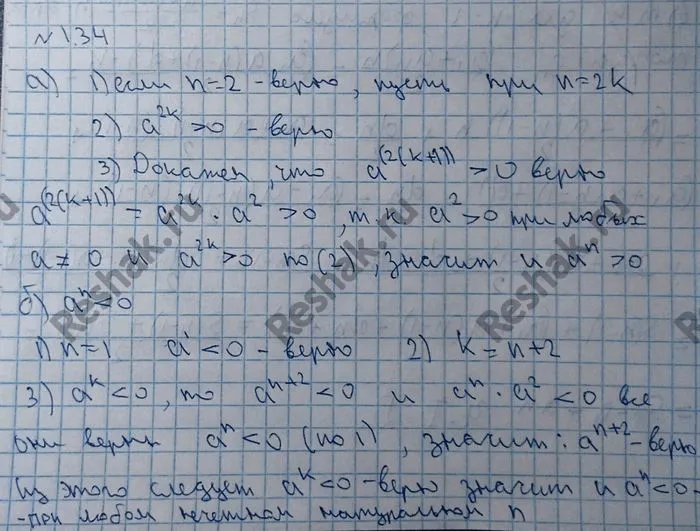 № 1.34
а) 1) если n=2 - верно, пусть при n=2k
2) a^{2k} >0 - верно
3) Докажем, что a^{(2(k+1))} >0 верно
a^{(2(k+1))} = a^{2k} · a^2 >0, т.к. a^2>0 при любых
a≠0 и a^{2k}>0 по (2), значит и a^n >0
б) a^n<0
1) n=1 a^1 <0 - верно 2) k=n+2
3) a^k<0, то a^{n+2}<0 и a^n · a^2 <0 все
они верны a^n<0 (по 1), значит: a^{n+2} - верно
из этого следует a^k<0 - верно значит и a^n<0-
-при любом нечетном натуральном n
Reshak.ru
Reshak.ru
Reshak.ru